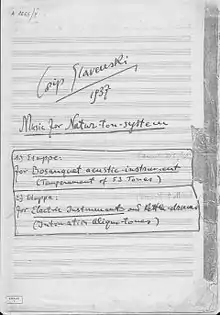 Osip Slavenski
1937
Music for Natur-ton-system
1) Etappe:
for Bosanquet acustic-instrument
(Temperament of 53 Tones)
2) Etappe:
for Electric Instruments and Kettle-drums
(Intonation aliquo-tones)